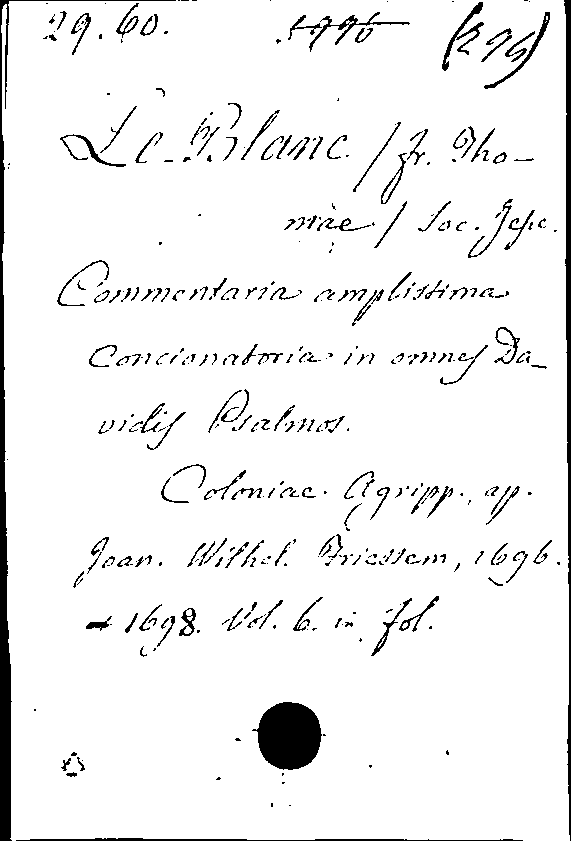 29.60. 1996 (295)
Le-Blanc / fr. Tho-
mae / Soc. Jesu.
Commentaria amplissima
Concionatoria in omnes Da-
vidis Psalmos.
Coloniae Agripp., ap.
Joan. Wilhel. Friessem, 1696.
- 1698. Vol. 6. in fol.